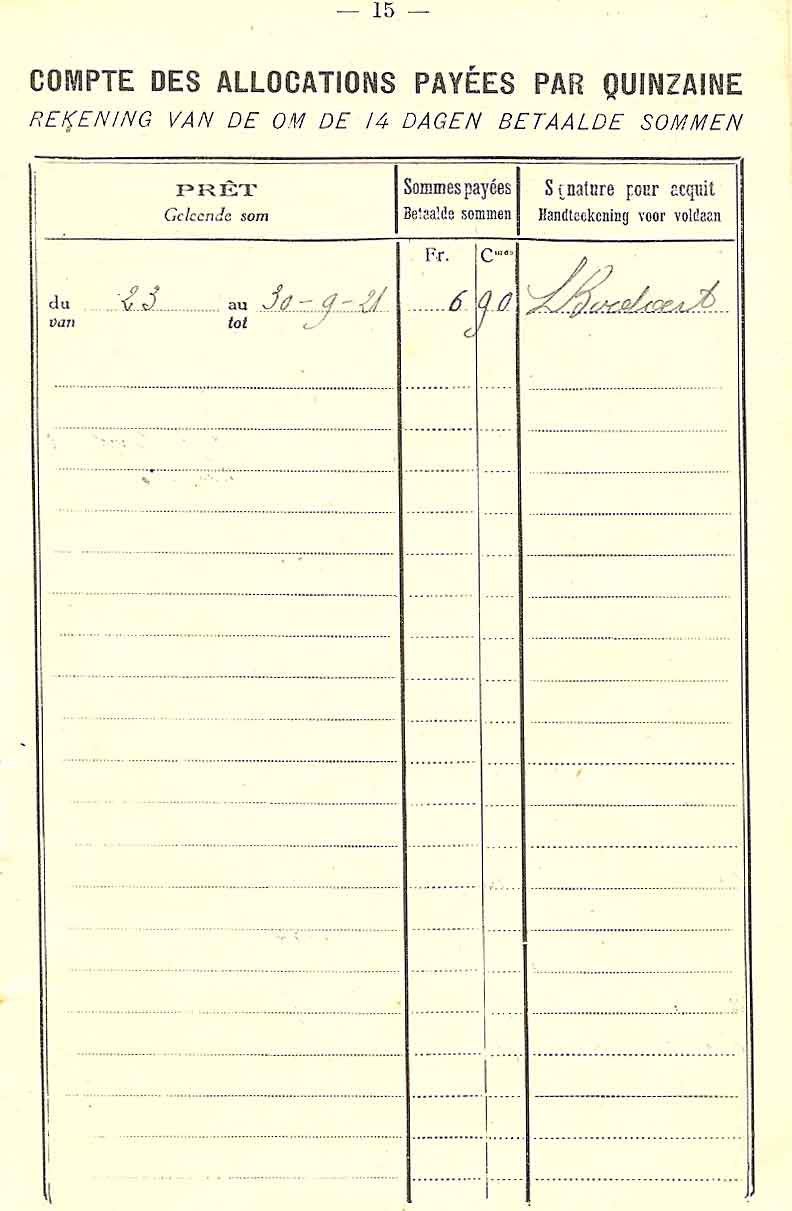 — 15 —
COMPTE DES ALLOCATIONS PAYÉES PAR QUINZAINE
REKENING VAN DE OM DE 14 DAGEN BETAALDE SOMMEN
PRÊT
Geleende som
Sommes payées
Betaalde sommen
Signature pour acquit
Handteekening voor voldaan
Fr. Cmes
du 23 au 30-9-21 6 90
van tot